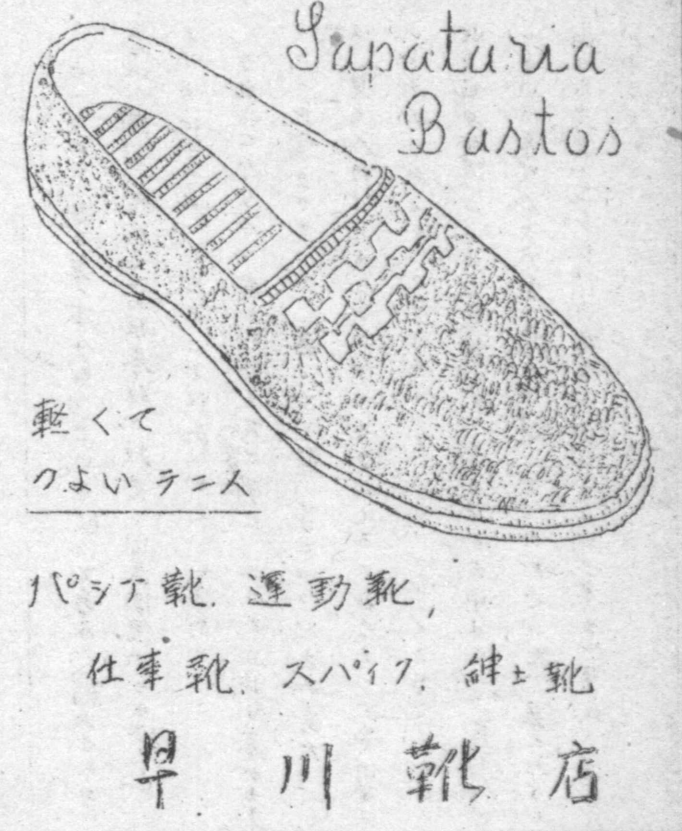 Sapataria
Bastos
軽くて
つよいテニス
パシア靴、運動靴、
仕事靴、スパイク、紳士靴
早川靴店